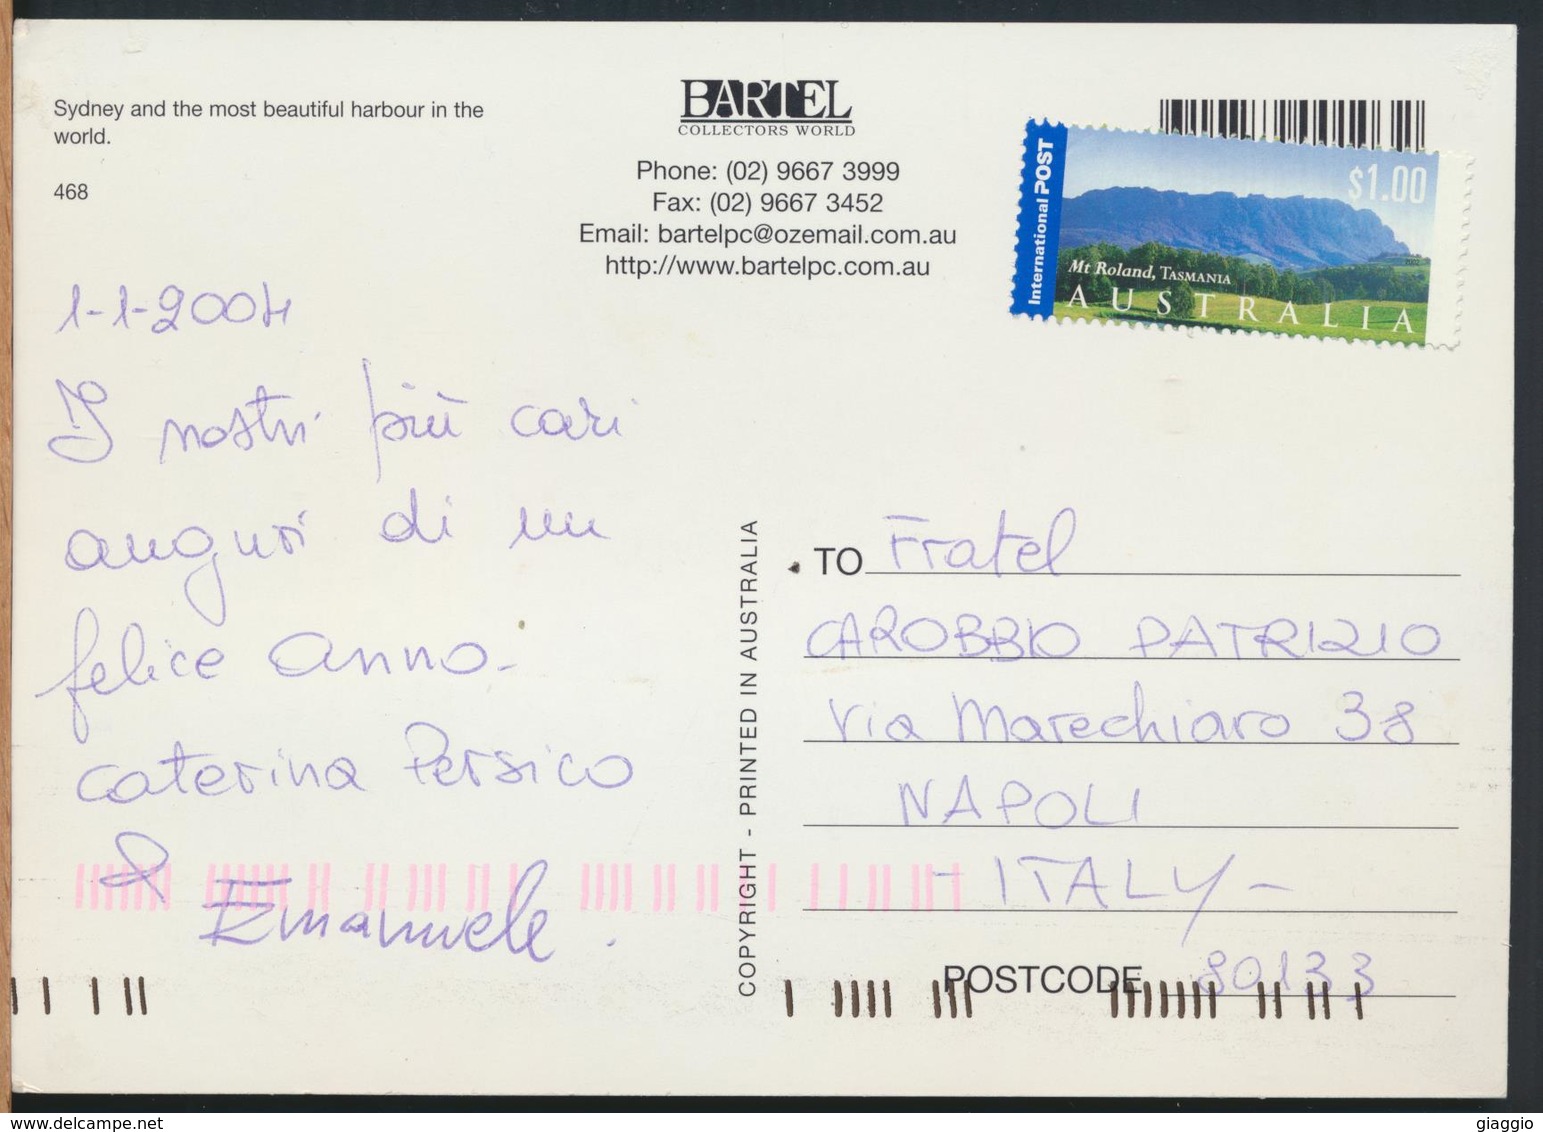 Sydney and the most beautiful harbour in the
world.
468
BARTEL
COLLECTORS WORLD
Phone: (02) 9667 3999
Fax: (02) 9667 3452
Email: bartelpc@ozemail.com.au
http://www.bartelpc.com.au
International POST
$1.00
Mt Roland, TASMANIA
AUSTRALIA
1-1-2004
I nostri più cari
auguri di un
felice anno.
Caterina Persico
&
Emanuele.
COPYRIGHT - PRINTED IN AUSTRALIA
TO Fratel
CAROBBIO PATRIZIO
Via Marechiaro 38
NAPOLI
- ITALY -
POSTCODE 80133
www.delcampe.net
giaggio